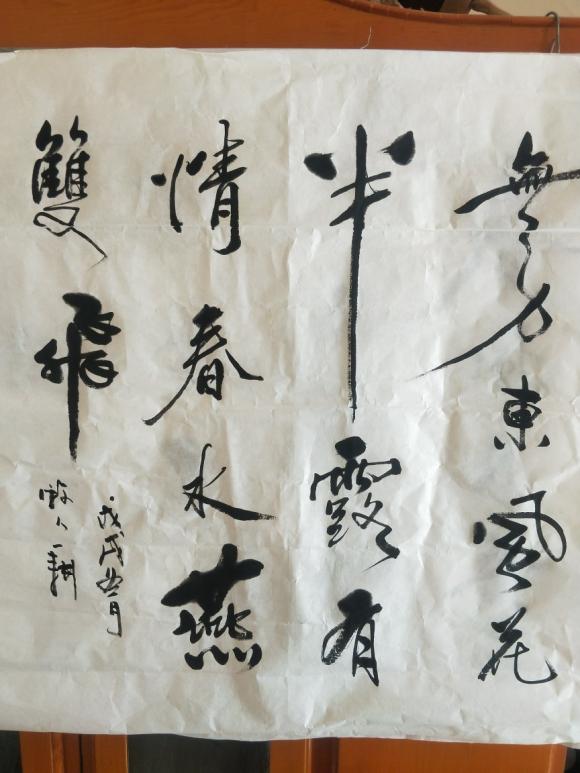 無力東風花
半露有
情春水燕
雙飛
戊戌五月